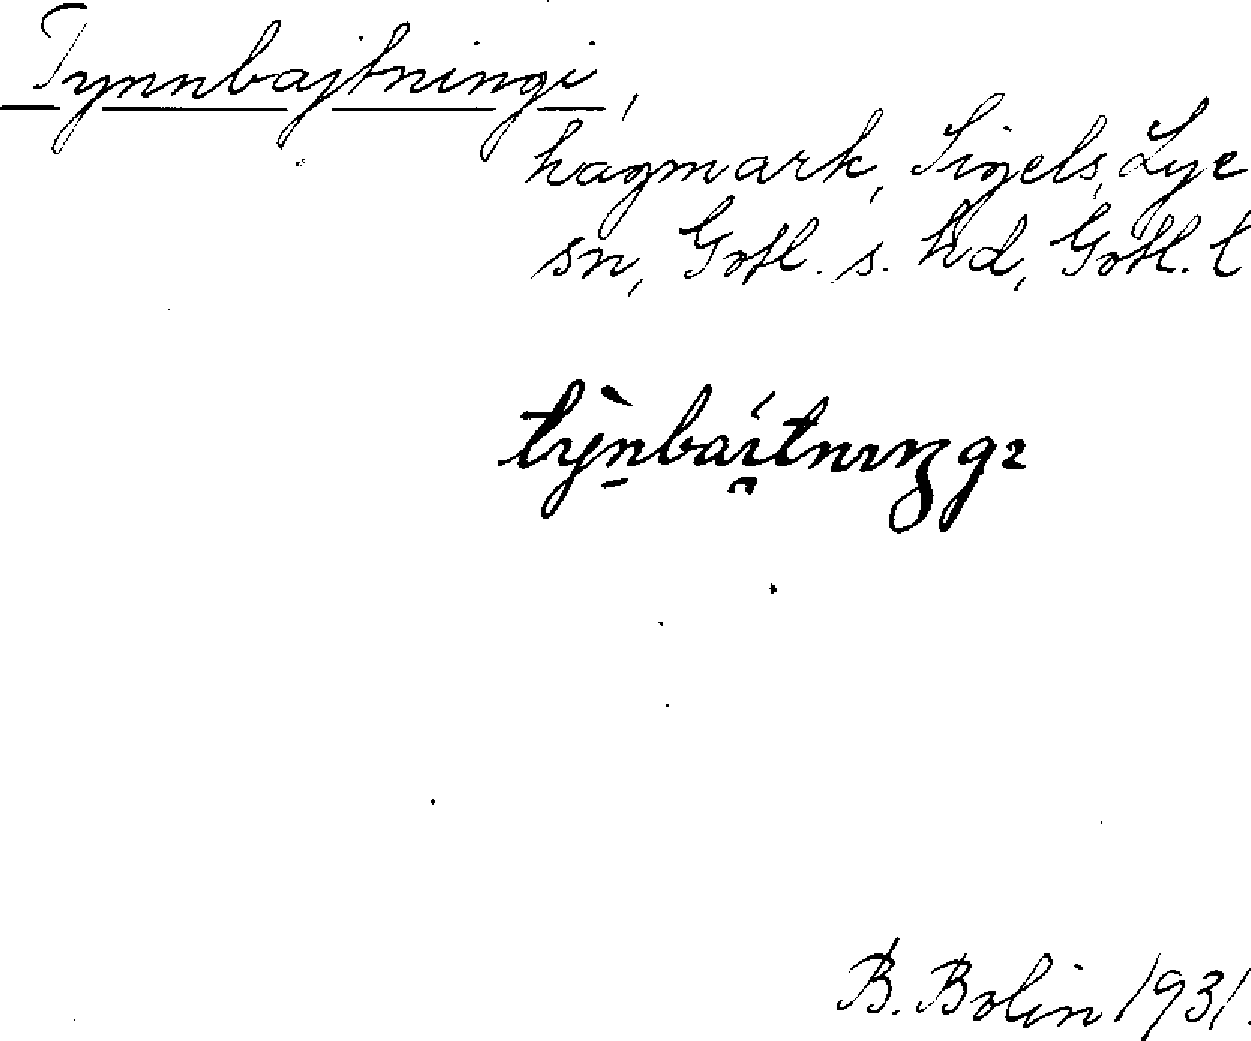 Tynnbajtningi,
hagmark, Sigels, Lye
sn, Gotl. s. hd, Gotl. l
B. Bolin 1931.